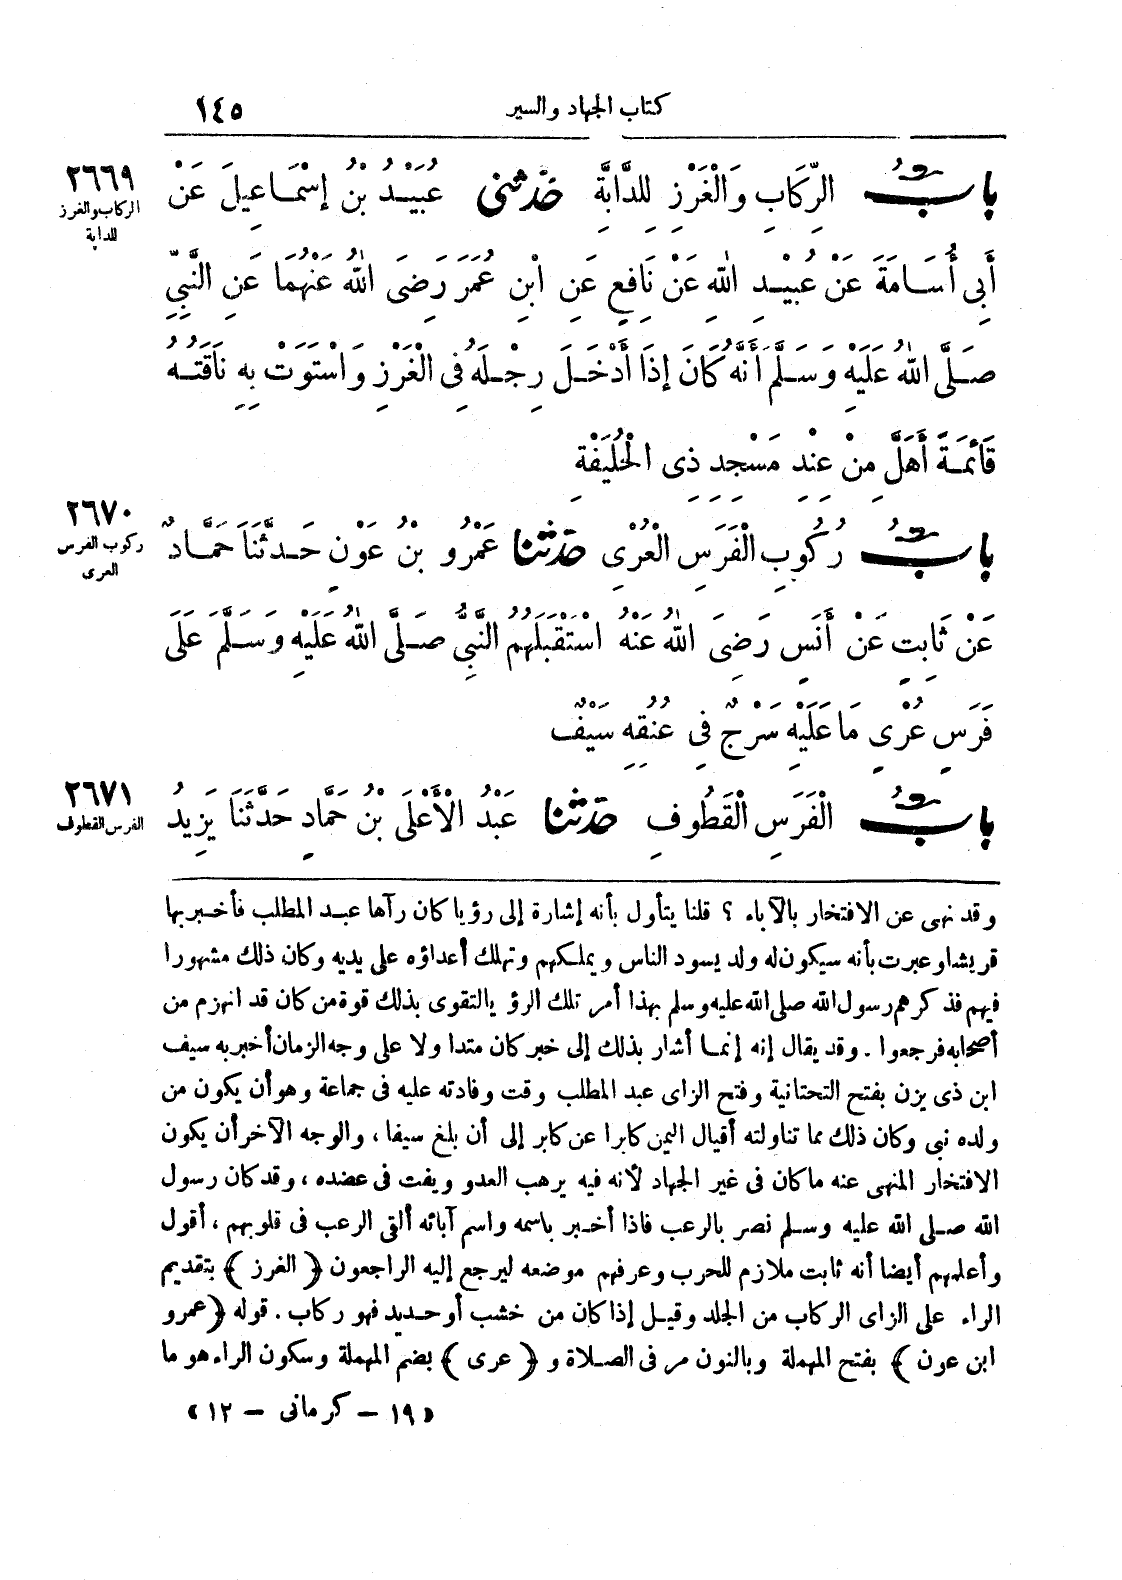 كتاب الجهاد والسير ١٤٥
بابُ الرِّكَابِ وَالْغَرْزِ لِلدَّابَّةِ حَدَّثَنِى عُبَيْدُ بْنُ إِسْمَاعِيلَ عَنْ
٢٦٦٩
الركاب والغرز
للدابة
أَبِى أُسَامَةَ عَنْ عُبَيْدِ اللهِ عَنْ نَافِعٍ عَنِ ابْنِ عُمَرَ رَضِىَ اللهُ عَنْهُمَا عَنِ النَّبِىِّ
صَلَّى اللهُ عَلَيْهِ وَسَلَّمَ أَنَّهُ كَانَ إِذَا أَدْخَلَ رِجْلَهُ فِى الْغَرْزِ وَاسْتَوَتْ بِهِ نَاقَتُهُ
قَائِمَةً أَهَلَّ مِنْ عِنْدِ مَسْجِدِ ذِى الْحُلَيْفَةِ
بابُ رُكُوبِ الْفَرَسِ الْعُرْىِ حَدَّثَنَا عَمْرُو بْنُ عَوْنٍ حَدَّثَنَا حَمَّادٌ
٢٦٧٠
ركوب الفرس
العرى
عَنْ ثَابِتٍ عَنْ أَنَسٍ رَضِىَ اللهُ عَنْهُ اسْتَقْبَلَهُمُ النَّبِىُّ صَلَّى اللهُ عَلَيْهِ وَسَلَّمَ عَلَى
فَرَسٍ عُرْىٍ مَا عَلَيْهِ سَرْجٌ فِى عُنُقِهِ سَيْفٌ
بابُ الْفَرَسِ الْقَطُوفِ حَدَّثَنَا عَبْدُ الْأَعْلَى بْنُ حَمَّادٍ حَدَّثَنَا يَزِيدُ
٢٦٧١
الفرس القطوف
وقد نهى عن الافتخار بالآباء ؟ قلنا يتأول بأنه إشارة إلى رؤيا كان رآها عبد المطلب فأخبر بها
قريشا وعبرت بأنه سيكون له ولد يسود الناس ويملكهم وتهلك أعداؤه على يديه وكان ذلك مشهورا
فيهم فذكرهم رسول الله صلى الله عليه وسلم بهذا أمر تلك الرؤيا لتقوى بذلك قوة من كان قد انهزم من
أصحابه فرجعوا . وقد يقال إنه إنما أشار بذلك إلى خبر كان متدا ولا على وجه الزمان أخبر به سيف
ابن ذى يزن بفتح التحتانية وفتح الزاى عبد المطلب وقت وفادته عليه فى جماعة وهو أن يكون من
ولده نبى وكان ذلك مما تناولته أقيال اليمن كابرا عن كابر إلى أن بلغ سيفا ، والوجه الآخر أن يكون
الافتخار المنهى عنه ما كان فى غير الجهاد لأنه فيه يرهب العدو ويفت فى عضده ، وقد كان رسول
الله صلى الله عليه وسلم نصر بالرعب فاذا أخبر باسمه واسم آبائه ألقى الرعب فى قلوبهم ، أقول
وأعلمهم أيضا أنه ثابت ملازم للحرب وعرفهم موضعه ليرجع إليه الراجعون ﴿ الغرز ﴾ بتقديم
الراء على الزاى الركاب من الجلد وقيل إذا كان من خشب أو حديد فهو ركاب . قوله ﴿ عمرو
ابن عون ﴾ بفتح المهملة وبالنون مر فى الصلاة و ﴿ عرى ﴾ بضم المهملة وسكون الراء هو ما
« ١٩ – كرمانى – ١٢ »